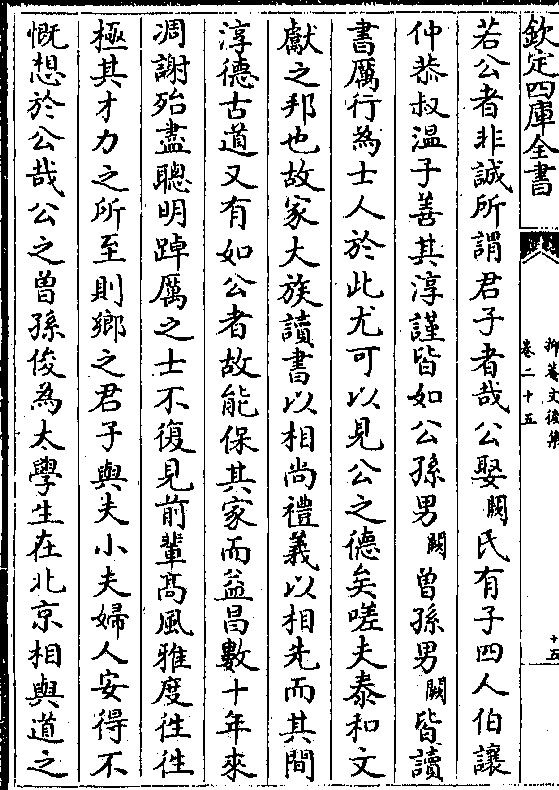 欽定四庫全書
抑菴文後集
卷二十五
十五
若公者非誠所謂君子者哉公娶闕氏有子四人伯讓
仲恭叔温子善其淳謹皆如公孫男闕曽孫男闕皆讀
書厲行為士人於此尤可以見公之德矣嗟夫泰和文
獻之邦也故家大族讀書以相尚禮義以相先而其間
淳德古道又有如公者故能保其家而益昌數十年來
凋謝殆盡聰明踔厲之士不復見前輩髙風雅度徃徃
極其才力之所至則鄉之君子與夫小夫婦人安得不
慨想於公哉公之曽孫俊為太學生在北京相與道之